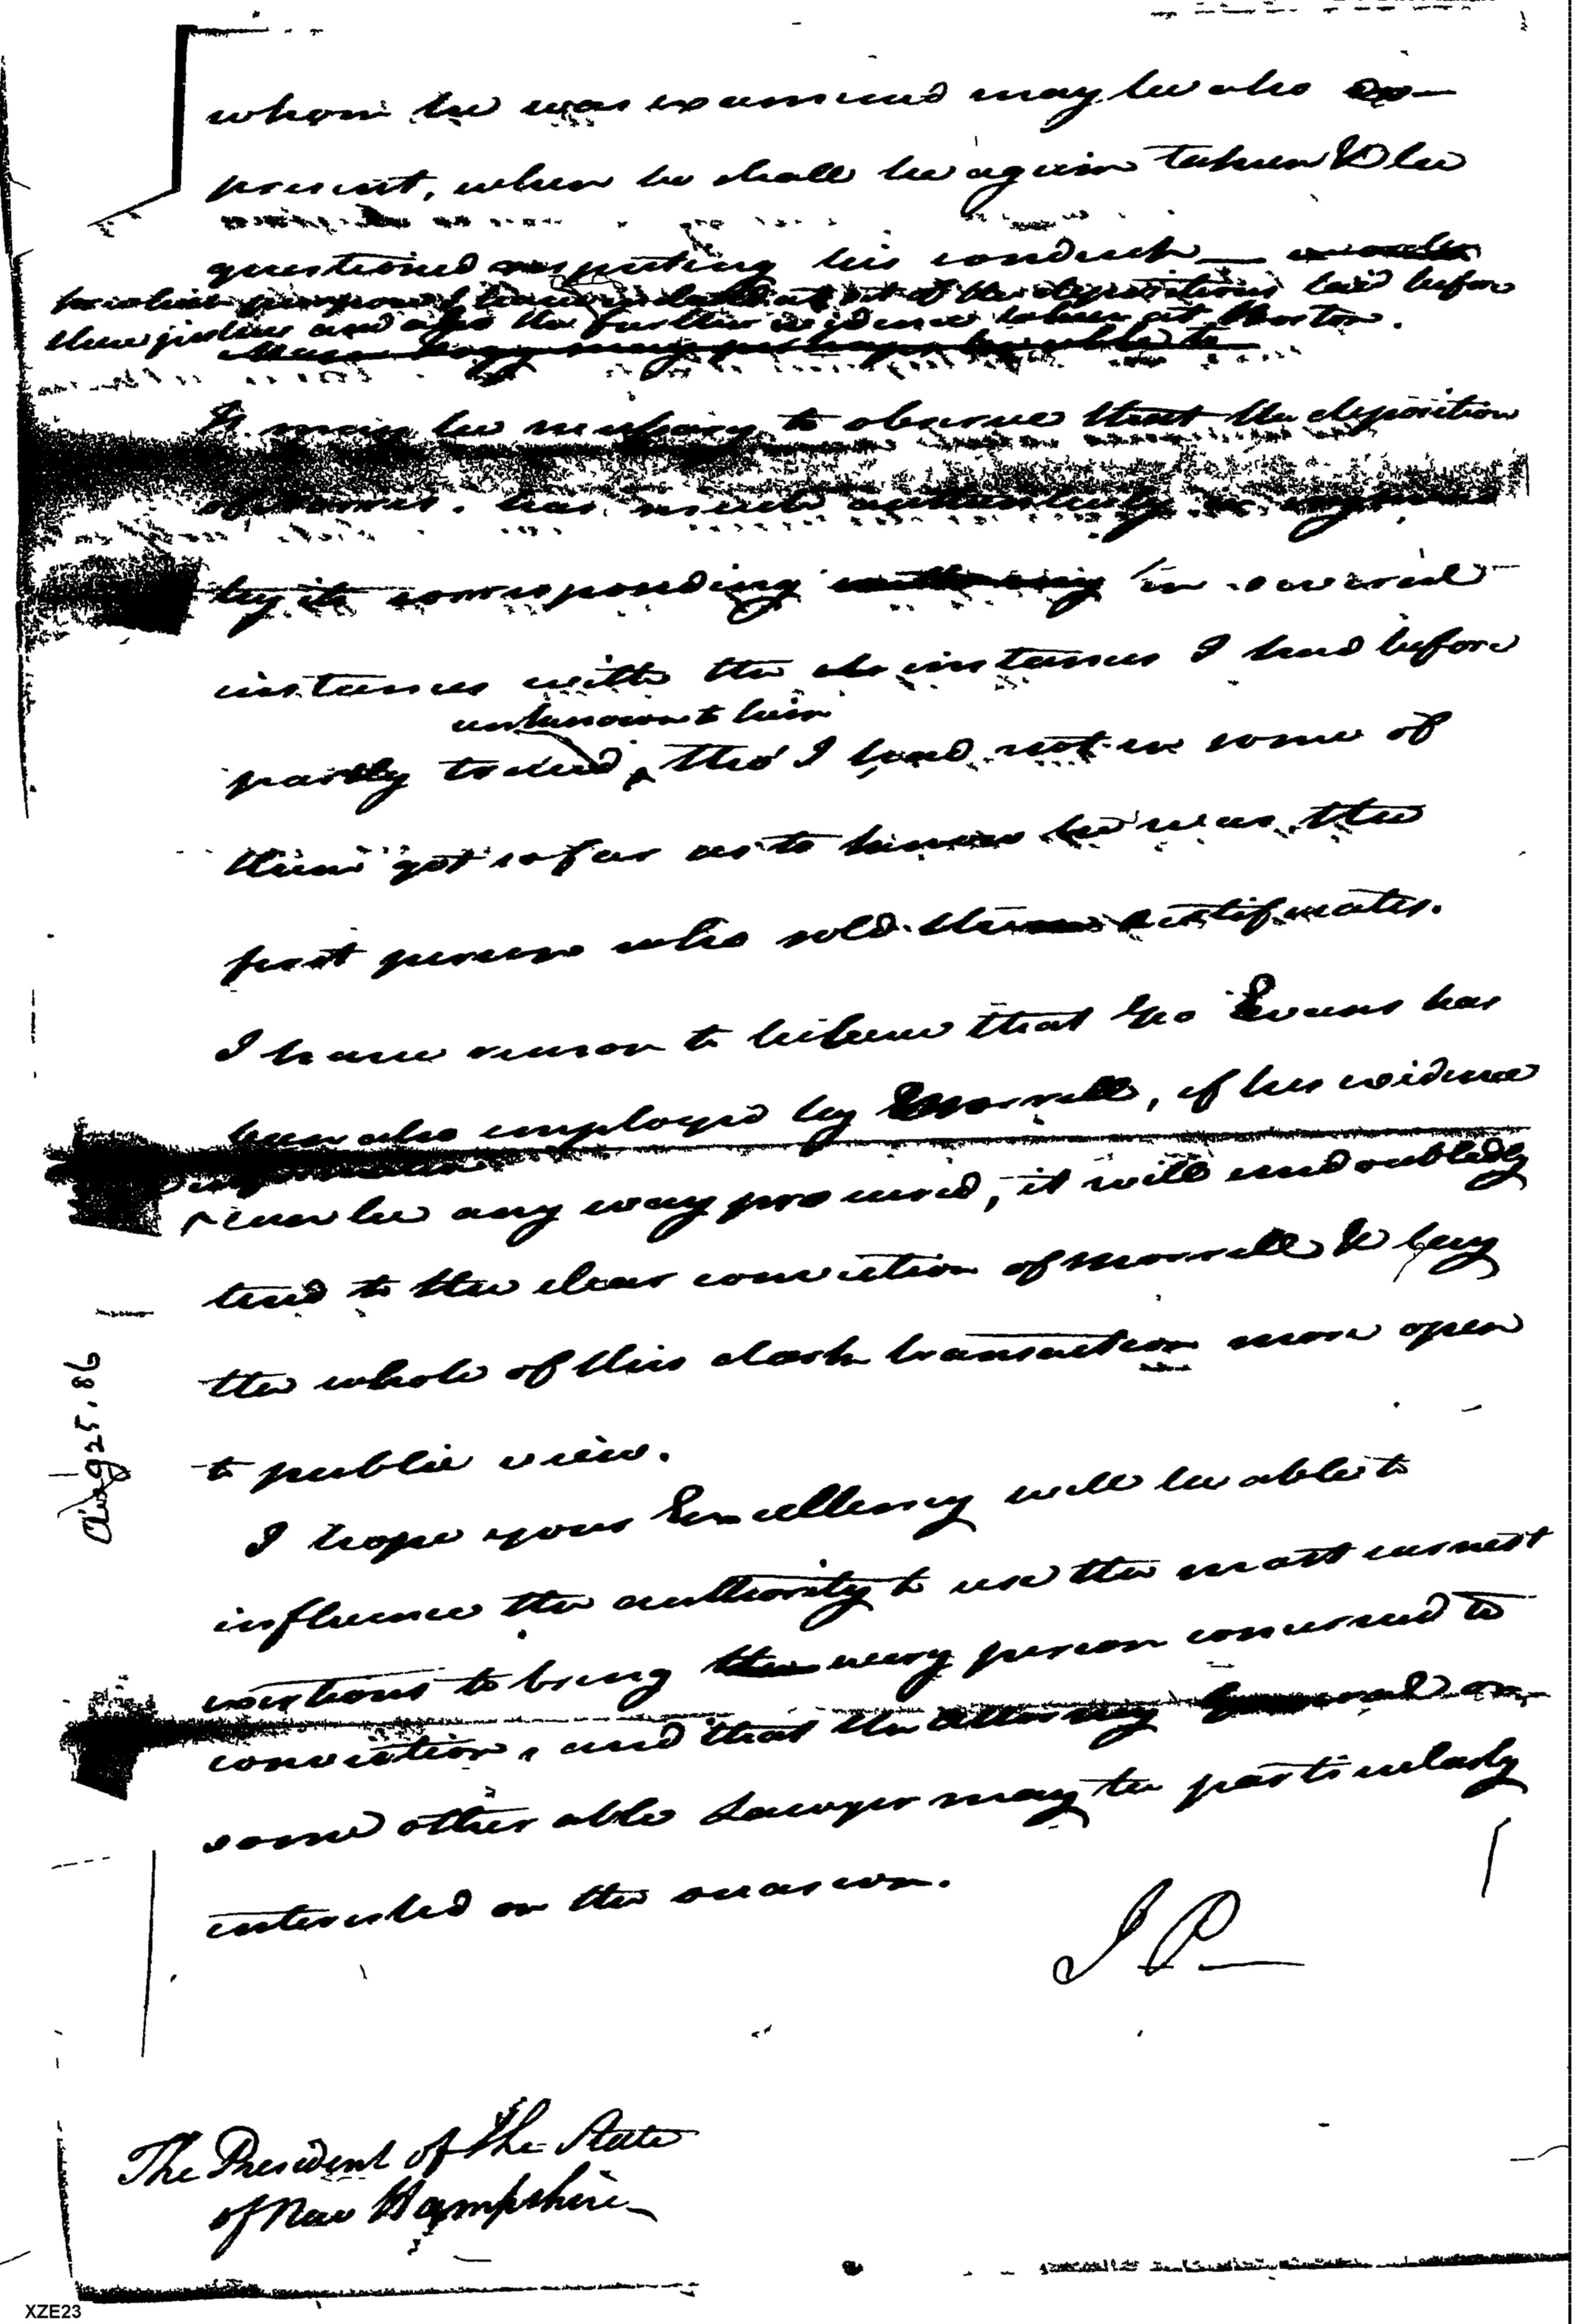 whom he was examined may be also
present, when he shall be again taken & be
questioned respecting his conduct—
for which purpose I have sett of the depositions laid before
these justices and also the further evidence taken at Boston.
may perhaps be able to
It may be necessary to observe that the deposition
of has much authenticity
by its corresponding in several
instances with the instances I had before
unknown to him
partly traced, tho' I had not in some of
them got so far as to know he was the
first person who sold certificates.
I have reason to believe that Geo Evans has
been also employed by Morrell, if his evidence
can be any way procured, it will undoubtedly
tend to the clear conviction of Morrell & lay
the whole of this dark transaction more open
to public view.
I hope your Excellency will be able to
influence the authority to use the most earnest
exertions to bring every person concerned to
conviction, and that the Attorney General or
some other able Lawyer may be particularly
interested on the occasion.
J P—
Aug 25. 86
The President of the State
of New Hampshire
XZE23